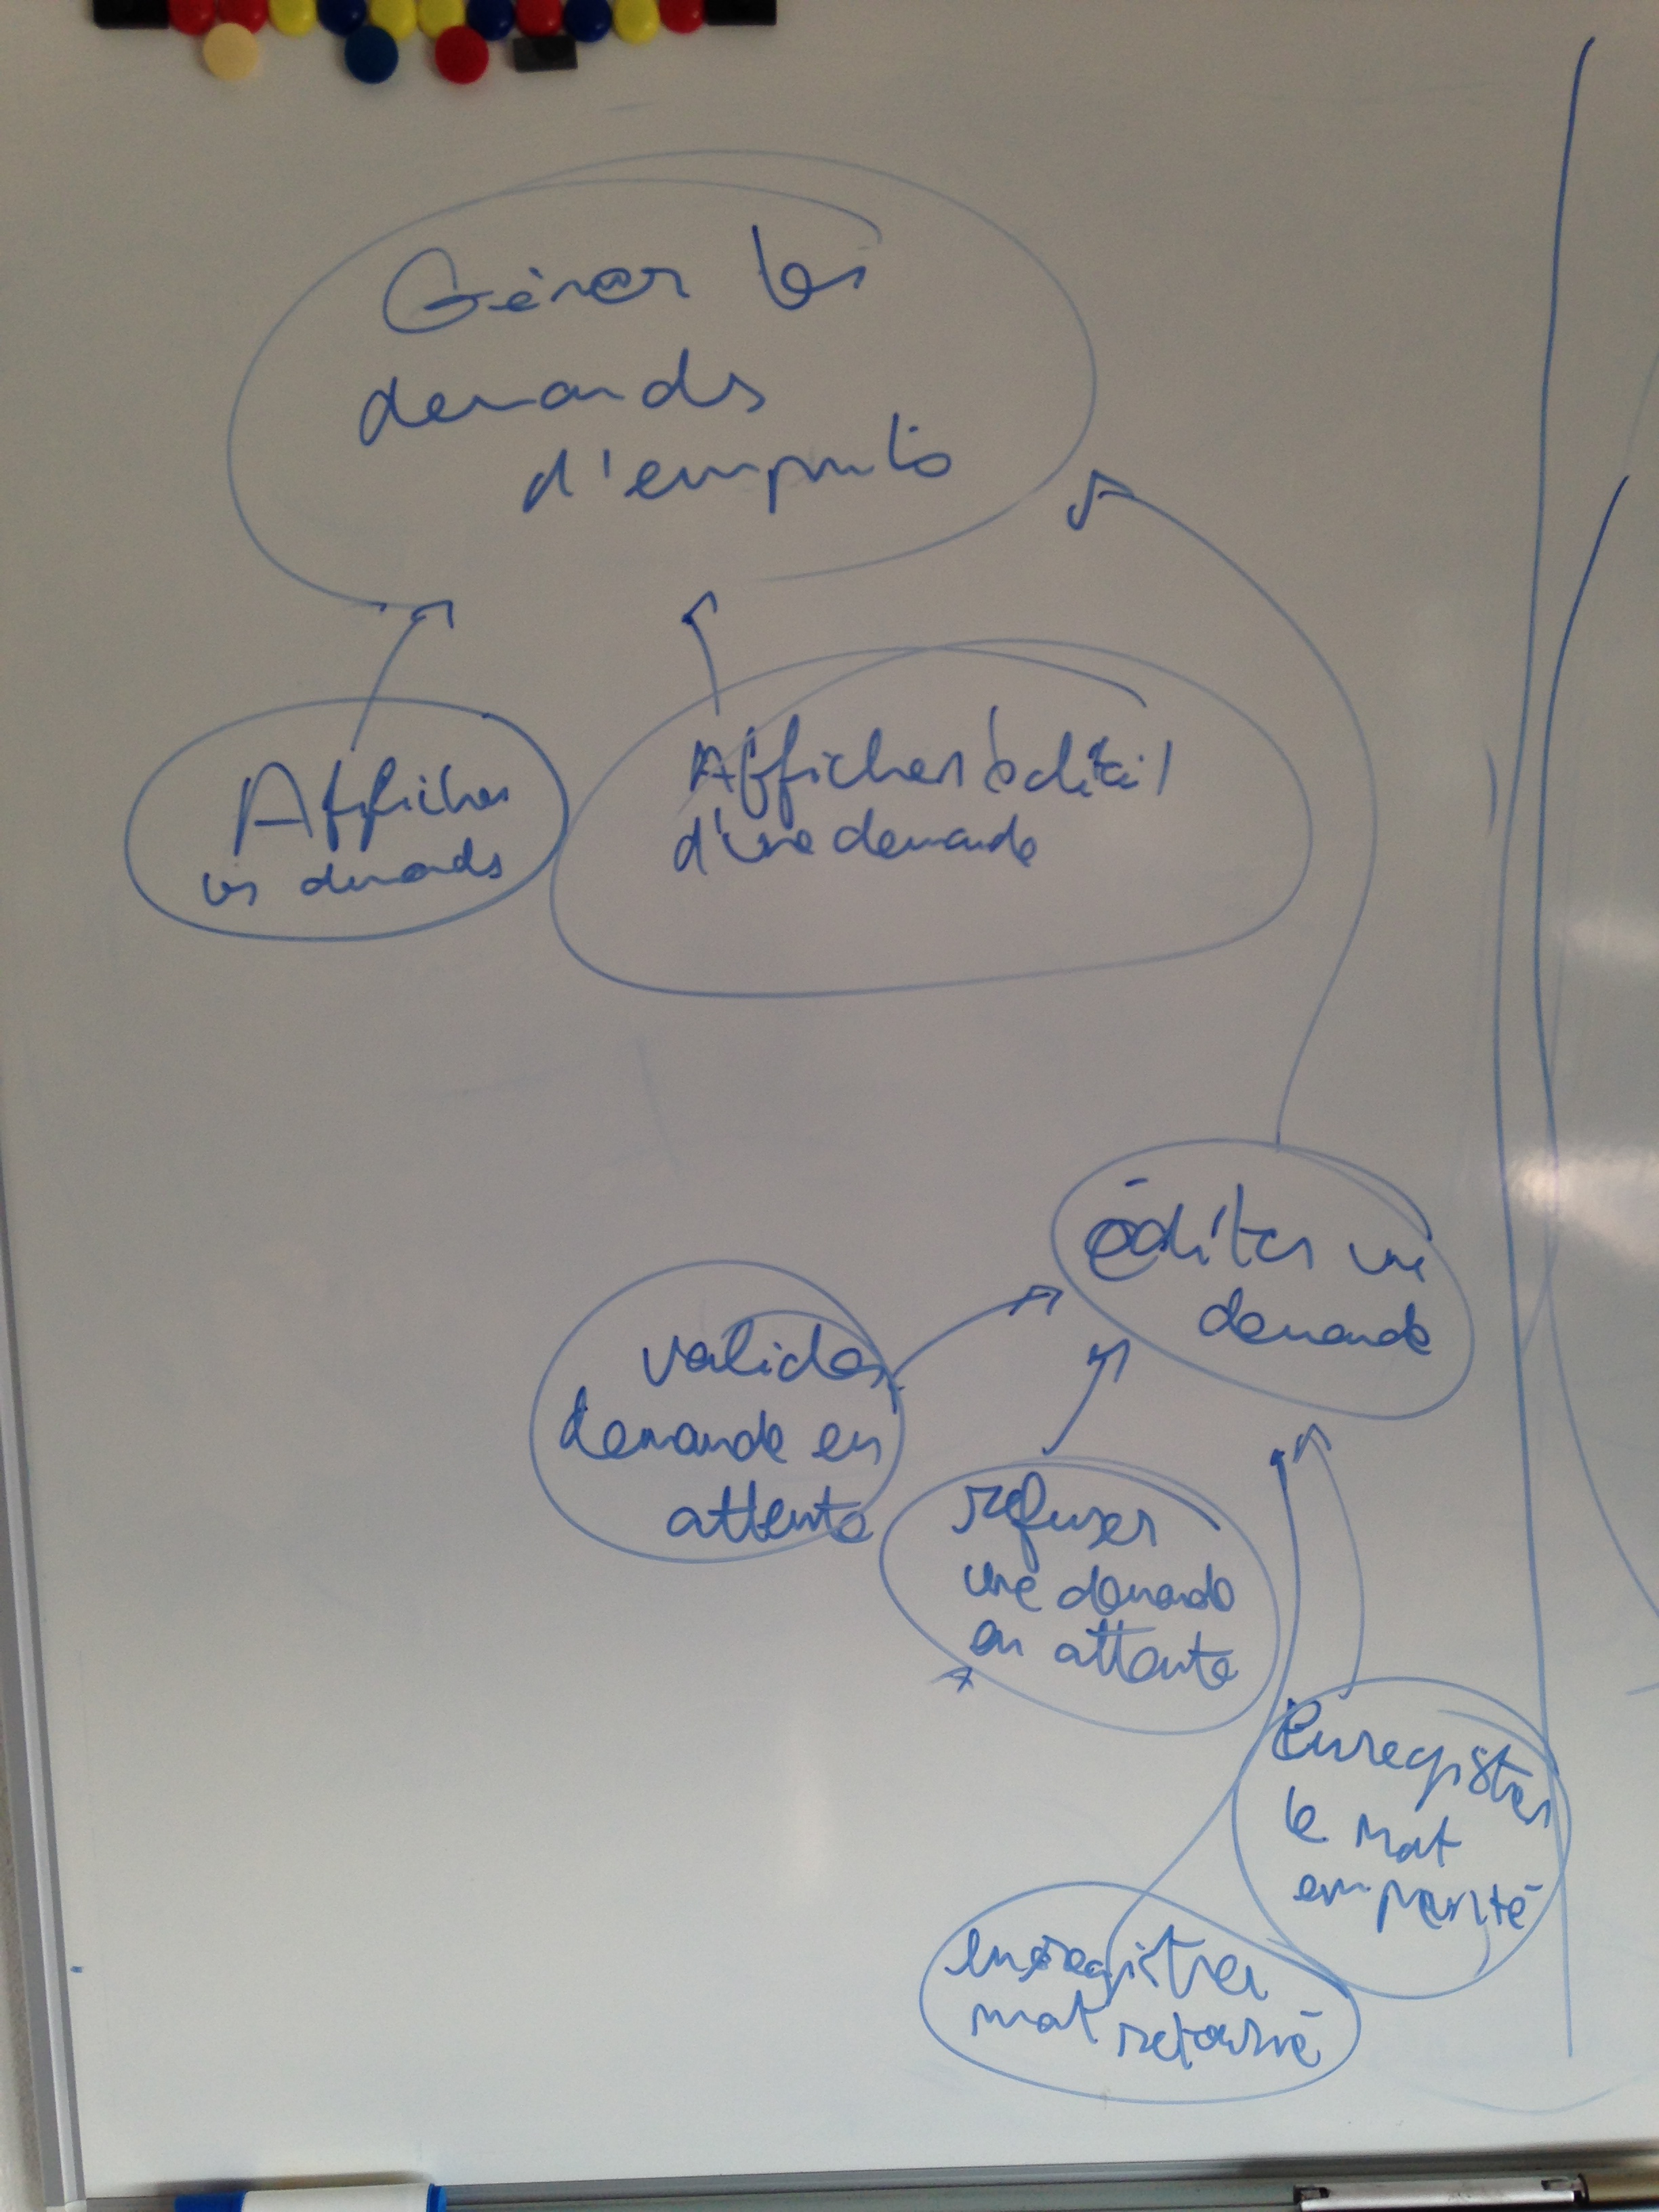 Gérer les
demandes
d'emprunts
Afficher
les demandes
Afficher le détail
d'une demande
éditer une
demande
valider
demande en
attente
refuser
une demande
en attente
Enregistrer
le mat
emprunté
enregistrer
mat retourné